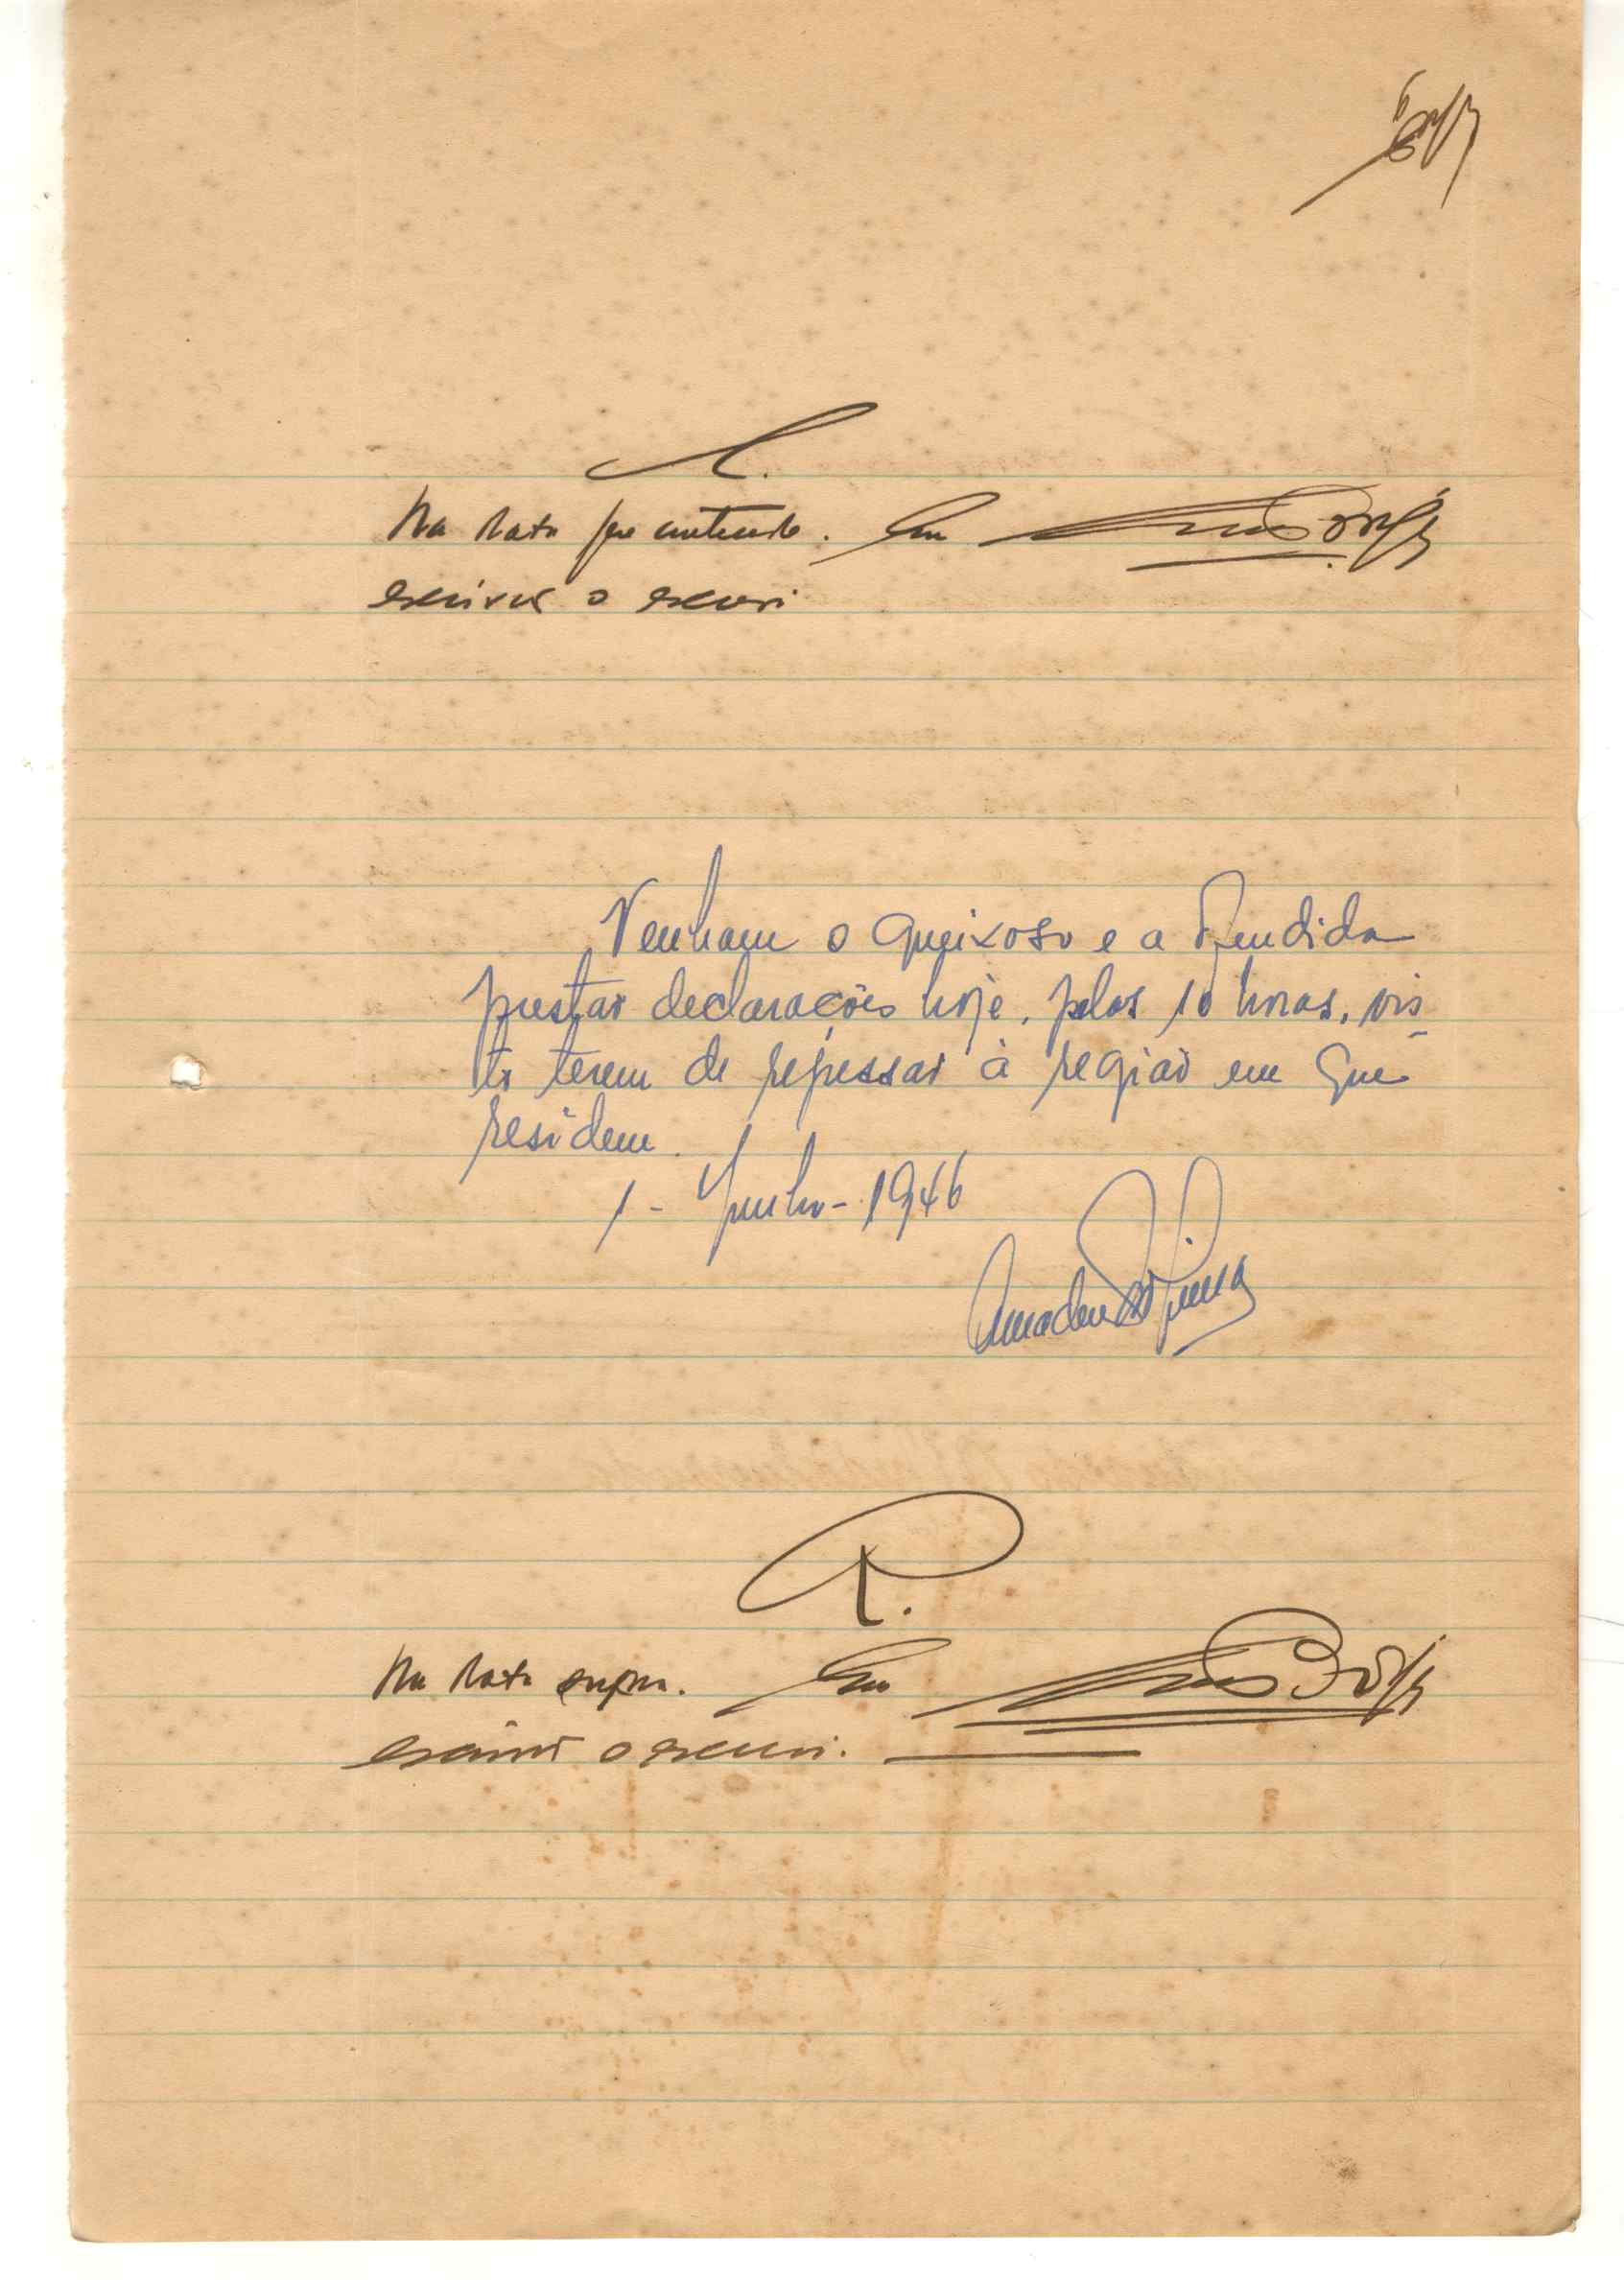 Na data que antecede. Eu
escrivão o escrevi
Venham o queixoso e a ofendida
prestar declarações hoje, pelas 10 horas, vis-
to terem de regressar à região em que
residem.
1 - Junho - 1946
Amadeu
R.
Na data supra. Eu
escrivão o escrevi.